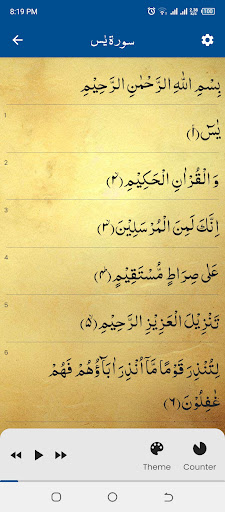 8:19 PM
سورة يٰس
بِسْمِ اللهِ الرَّحْمٰنِ الرَّحِيْمِ
يٰسٓ ﴿١﴾
1
وَالْقُرْاٰنِ الْحَكِيْمِ ﴿٢﴾
2
اِنَّكَ لَمِنَ الْمُرْسَلِيْنَ ﴿٣﴾
3
عَلٰى صِرَاطٍ مُّسْتَقِيْمٍ ﴿٤﴾
4
تَنْزِيْلَ الْعَزِيْزِ الرَّحِيْمِ ﴿٥﴾
5
لِتُنْذِرَ قَوْمًا مَّآ اُنْذِرَ اٰبَآؤُهُمْ فَهُمْ
غٰفِلُوْنَ ﴿٦﴾
6
Theme
Counter